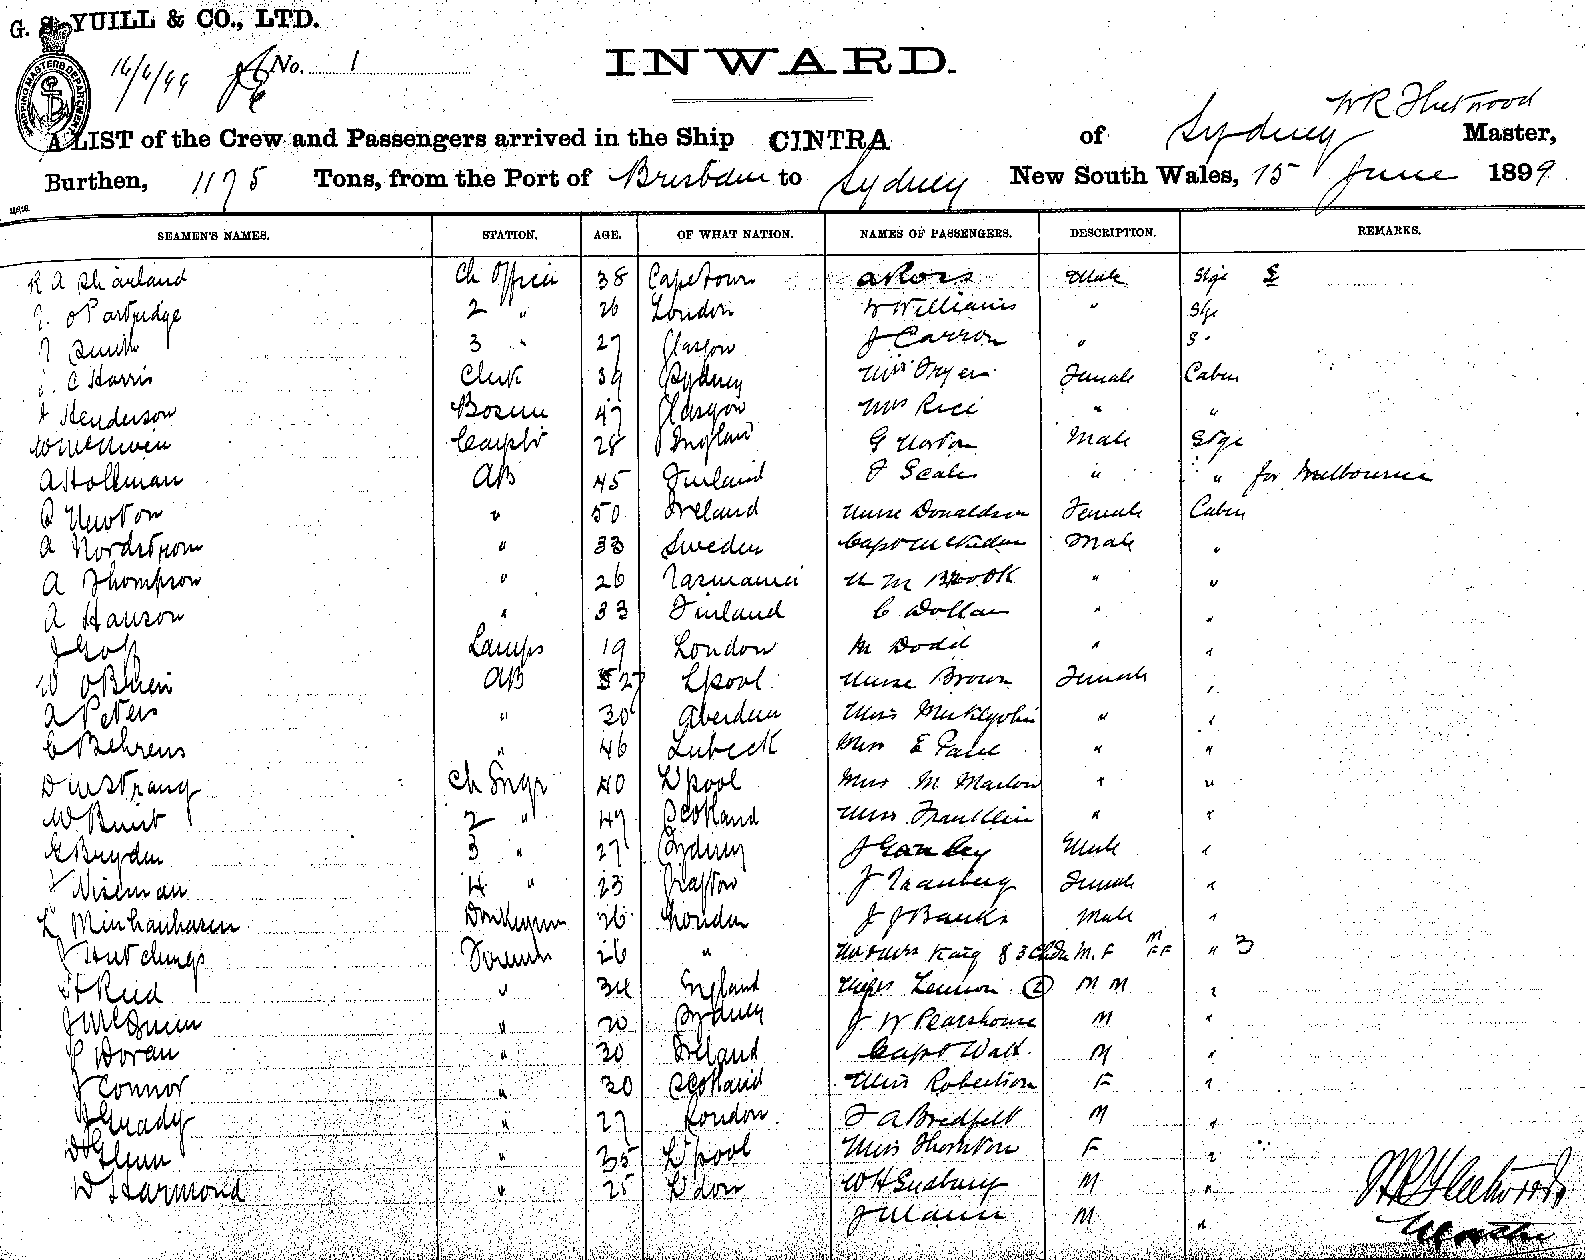 G. S. YUILL & CO., LTD.
16/6/99 No. 1
INWARD.
W R Fleetwood
A LIST of the Crew and Passengers arrived in the Ship CINTRA of Sydney Master,
Burthen, 1175 Tons, from the Port of Brisbane to Sydney New South Wales, 15 June 1899
SEAMEN'S NAMES. STATION. AGE. OF WHAT NATION. NAMES OF PASSENGERS. DESCRIPTION. REMARKS.
R A Sharland Ch Officer 38 Capetown A Ross Male Stge S
Partridge 2 " 26 London W Williams " Stge
Smith 3 " 27 Glasgow J Carron " S.
C Harris Clerk 39 Sydney Miss Fryer Female Cabin
Henderson Bosun 47 Glasgow Mrs Rice " "
28 England G Norton Male Stge
A Holkman AB 45 Finland J Scales " " for Melbourne
Newton " 50 Ireland Nurse Donaldson Female Cabin
A Nordstrom " 33 Sweden Capt Male "
A Thompson " 26 Tasmania Brook " "
A Hanson " 33 Finland C Dollar " "
J Goss Lamps 19 London M Dodd " "
W O'Brien AB 27 L'pool Nurse Brown Female "
A Peters " 30 Aberdeen Miss " "
C Behrens " 46 Lubeck Miss E Paul " "
D McStrang Ch Engr 40 L'pool M " "
W Buist 2 " 49 Scotland Miss Franklin " "
Bryden 3 " 27 Sydney J Male "
Niseman 4 " 23 Grafton J Female "
L Minhanhasen Donkeyman 26 London J J Banks Male "
J Hutchings Fireman 26 " Mr & Mrs King & 3 Chdn M. F M FF " 3
H Reid " 34 England Lennon (2) M M "
J McGuinn " 20 Sydney J W Pearshouse M "
P Doran " 30 Ireland Capt Watt M "
J Connor " 30 Scotland Miss Robertson F "
J Grady " 27 London J A Bredfelt M "
Glenn " 35 L'pool Miss Thornton F "
W Harmond " 25 L'don W H M "
J Mann M "
W R Fleetwood
Master